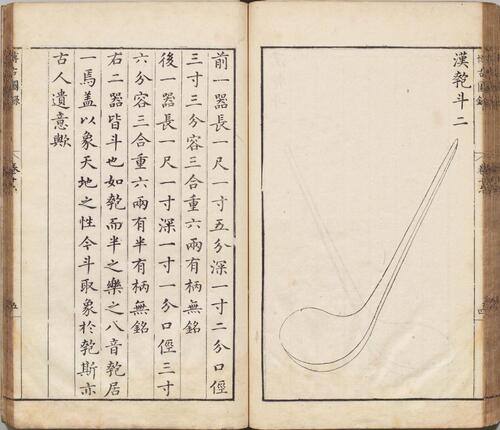 漢匏斗二
前一器長一尺一寸五分深一寸二分口徑
三寸三分容三合重六兩有柄無銘
後一器長一尺一寸深一寸一分口徑三寸
六分容三合重六兩有半有柄無銘
右二器皆斗也如匏而半之樂之八音匏居
一焉盖以象天地之性今斗取象於匏斯亦
古人遺意歟
博古圖錄